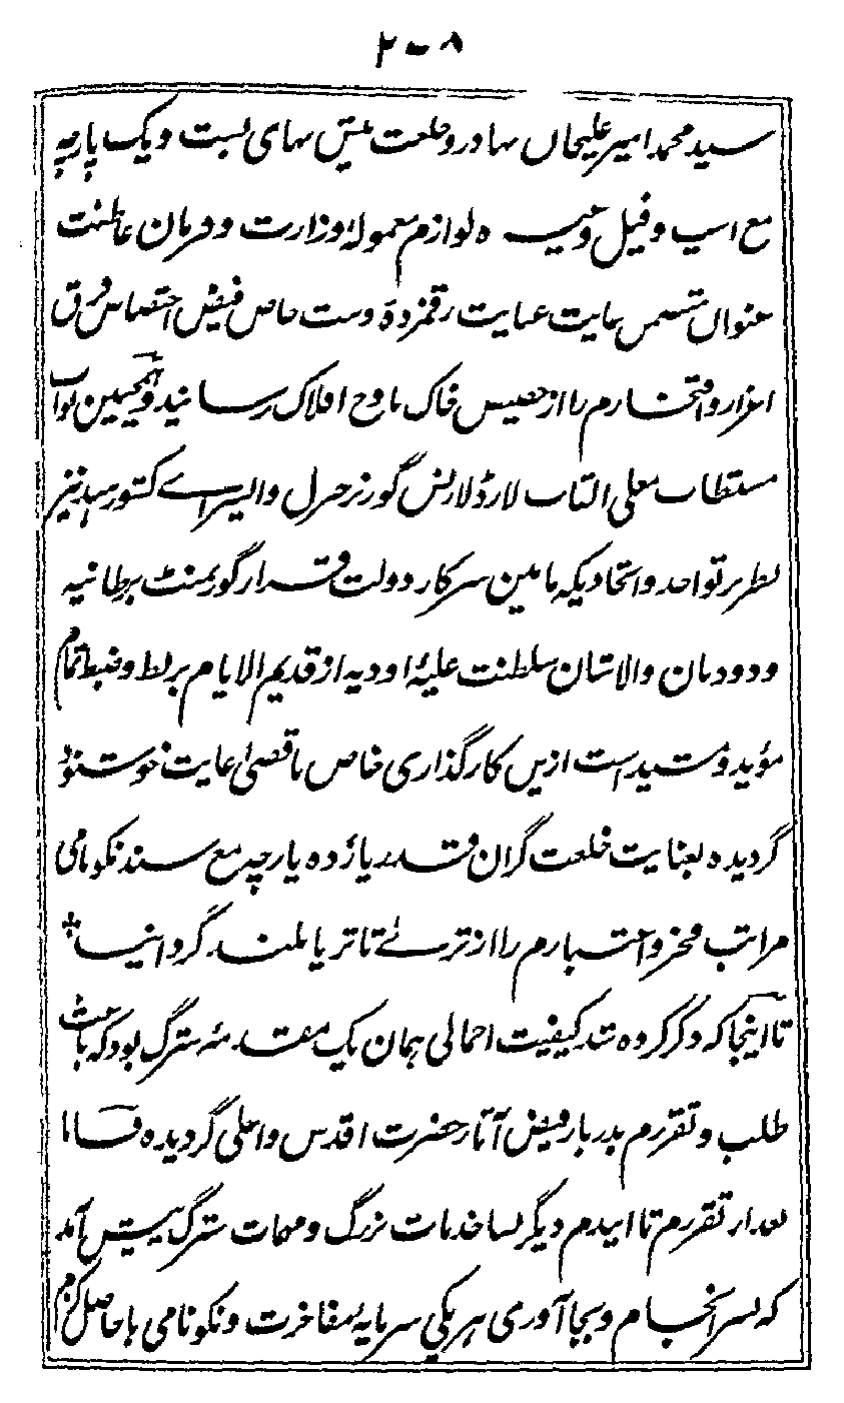 ۲۰۸
سید محمد امیر علیخان بهادر و خلعت بیش بهای بست و یک پارچه
مع اسپ و فیل وغیره لوازم معمولهٔ وزارت و فرمان عاطفت
عنوان متضمن عنایت رقمزدهٔ دست خاص فیض اختصاص فرق
اعزاز و افتخارم را از حضیض خاک باوج افلاک رسانید و همچنین نواب
مستطاب معلی القاب لارڈ لارنس گورنر جنرل وایسرائے کشور هند نیز
نظر بر تواحد و اتحادیکه مابین سرکار دولت قرار گورنمنٹ برطانیه
و دودمان والاشان سلطنت علیهٔ اودیه از قدیم الایام بربط و ضبط تمام
مؤید و مشید است ازین کارگذاری خاص باقصیٰ غایت خوشنود
گردیده بعنایت خلعت گران قدر یازده پارچه مع سند نکونامی
مراتب فخر و اعتبارم را از ثرے تا ثریا بلند گردانید
تا اینجا که ذکر کرده شد کیفیت اجمالی همان یک مقدمهٔ سترگ بود که باعث
طلب و تقررم بدربار فیض آثار حضرت اقدس و اعلی گردیده فاما
بعد از تقررم تا ایندم دیگر بسا خدمات بزرگ و مهمات سترگ پیش آمد
که بسرانجام و بجاآوری هر یکی سرمایهٔ مفاخرت و نکونامی با حاصل کردم